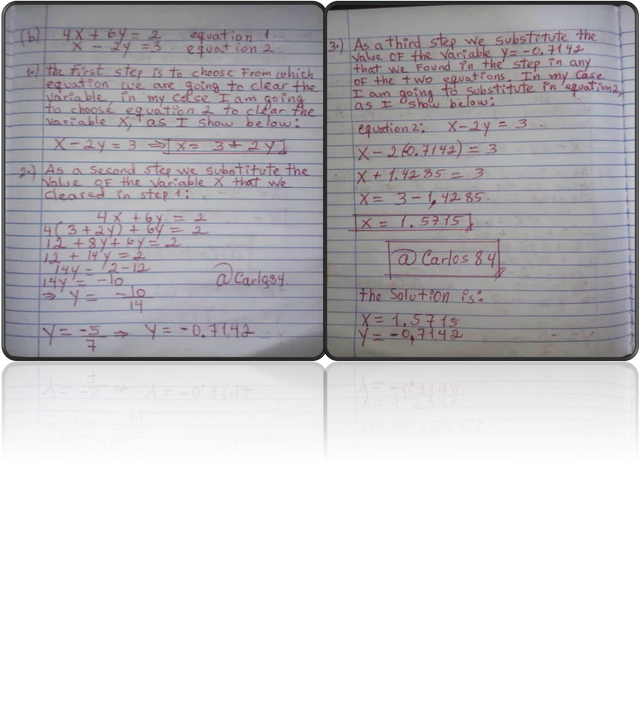 (b) 4x + 6y = 2 equation 1
x - 2y = 3 equation 2
1.) the first step is to choose from which
equation we are going to clear the
variable, in my case I am going
to choose equation 2 to clear the
variable X, as I show below:
X - 2y = 3 ⇒ X = 3 + 2y
2.) As a second step we substitute the
value of the variable X that we
cleared in step 1:
4x + 6y = 2
4(3+2y) + 6y = 2
12 + 8y + 6y = 2
12 + 14y = 2
14y = 2-12
14y = -10
@Carlos84
⇒ y = -10/14
y = -5/7 ⇒ y = -0.7142
3.) As a third step we substitute the
value of the variable y = -0.7142
that we found in the step in any
of the two equations. In my case
I am going to substitute in equation 2,
as I show below:
equation 2: X - 2y = 3
X - 2(-0.7142) = 3
X + 1.4285 = 3
X = 3 - 1,4285
X = 1.5715
@Carlos84
the solution is:
X = 1.5715
y = -0,7142